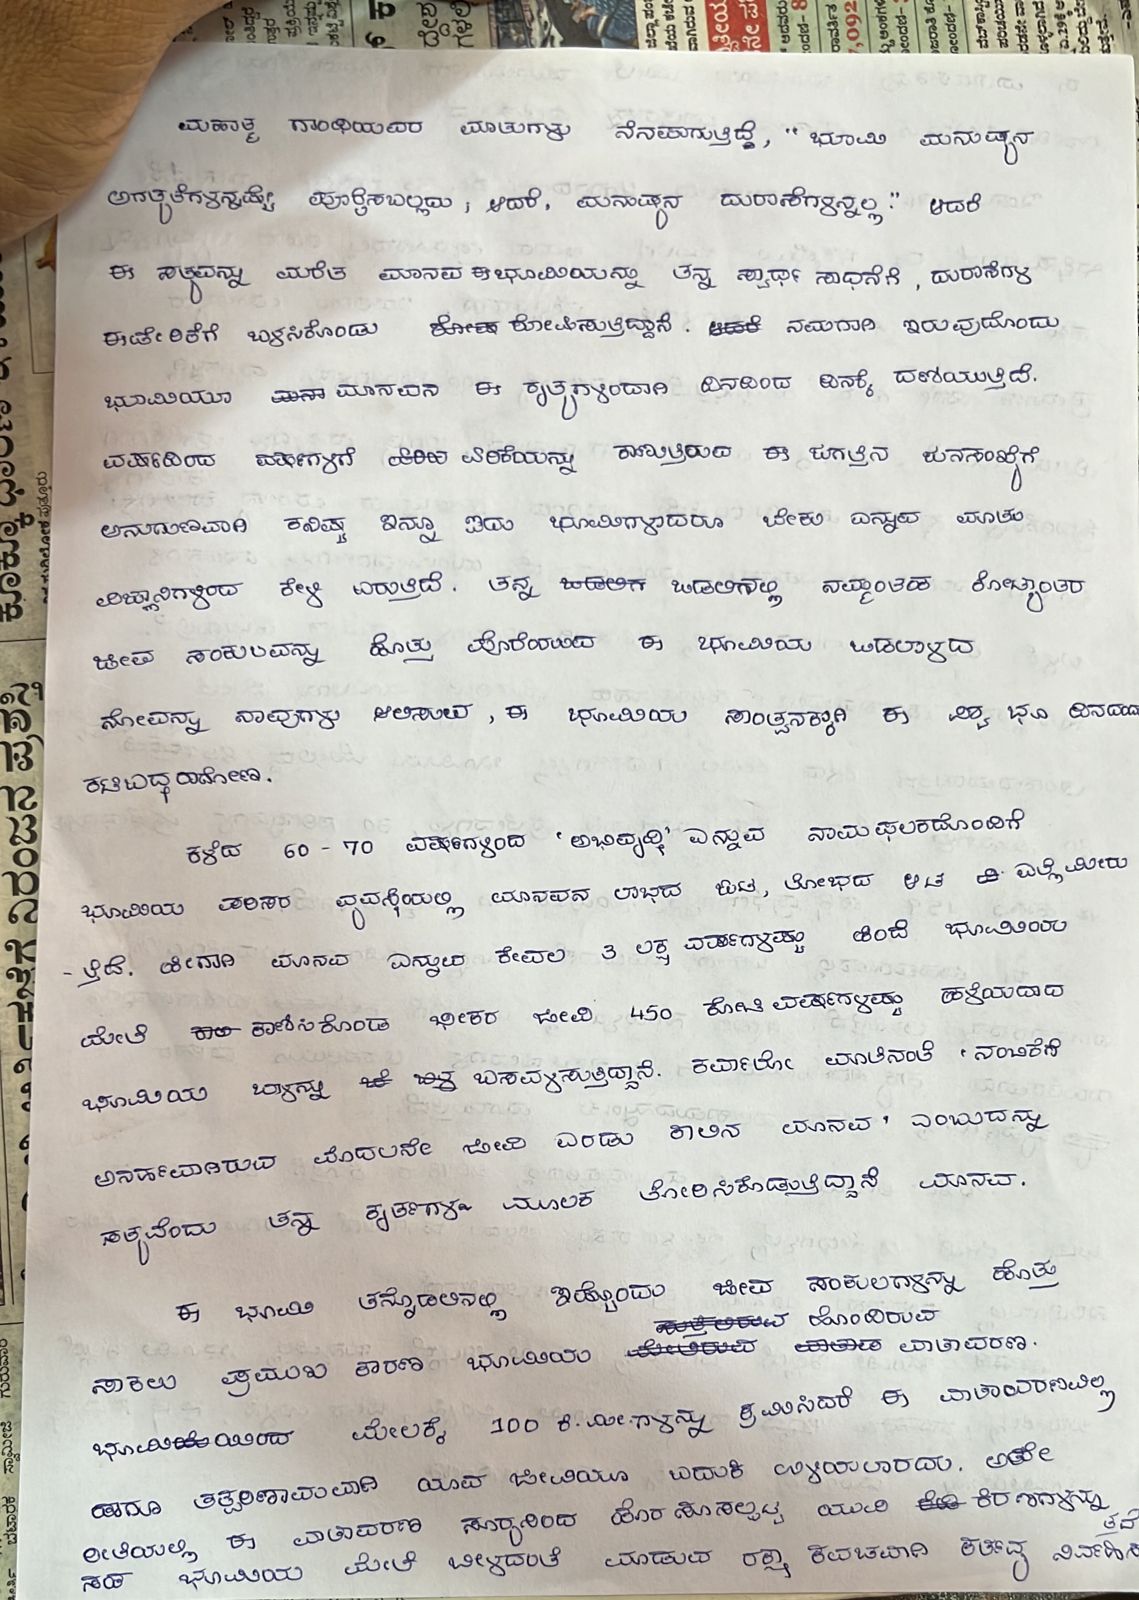 ಮಹಾತ್ಮ ಗಾಂಧಿಯವರ ಮಾತುಗಳು ನೆನಪಾಗುತ್ತಿದ್ದೆ, "ಭೂಮಿ ಮನುಷ್ಯನ
ಅಗತ್ಯತೆಗಳನ್ನಷ್ಟೇ ಪೂರೈಸಬಲ್ಲದು, ಆದರೆ, ಮನುಷ್ಯನ ದುರಾಸೆಗಳನ್ನಲ್ಲ." ಆದರೆ
ಈ ಸತ್ಯವನ್ನು ಮರೆತ ಮಾನವ ಈ ಭೂಮಿಯನ್ನು ತನ್ನ ಸ್ವಾರ್ಥ ಸಾಧನೆಗೆ, ದುರಾಸೆಗಳ
ಈಡೇರಿಕೆಗೆ ಬಳಸಿಕೊಂಡು ಶೋಷಿಸುತ್ತಿದ್ದಾನೆ. ನಮಗಾಗಿ ಇರುವುದೊಂದು
ಭೂಮಿಯೂ ಮಾನವನ ಈ ಕೃತ್ಯಗಳಿಂದಾಗಿ ದಿನದಿಂದ ದಿನಕ್ಕೆ ದಣಿಯುತ್ತಿದೆ.
ವರ್ಷದಿಂದ ವರ್ಷಗಳಿಗೆ ಏರಿಕೆಯನ್ನು ಕಾಣುತ್ತಿರುವ ಈ ಜಗತ್ತಿನ ಜನಸಂಖ್ಯೆಗೆ
ಅನುಗುಣವಾಗಿ ಕನಿಷ್ಠ ಇನ್ನೂ ಐದು ಭೂಮಿಗಳಾದರೂ ಬೇಕು ಎನ್ನುವ ಮಾತು
ವಿಜ್ಞಾನಿಗಳಿಂದ ಕೇಳಿ ಬರುತ್ತಿದೆ. ತನ್ನ ಒಡಲಿನಲ್ಲಿ ನಮ್ಮಂತಹ ಕೋಟ್ಯಾಂತರ
ಜೀವ ಸಂಕುಲವನ್ನು ಹೊತ್ತು ಪೊರೆಯುವ ಈ ಭೂಮಿಯ ಒಡಲಾಳದ
ನೋವನ್ನು ನಾವುಗಳು ಆಲಿಸುವ, ಈ ಭೂಮಿಯ ಸಾಂತ್ವನಕ್ಕಾಗಿ ಈ ವಿಶ್ವ ಭೂ ದಿನದಂದು
ಕಟಿಬದ್ಧರಾಗೋಣ.
ಕಳೆದ 60-70 ವರ್ಷಗಳಿಂದ 'ಅಭಿವೃದ್ಧಿ' ಎನ್ನುವ ನಾಮಫಲಕದೊಂದಿಗೆ
ಭೂಮಿಯ ಪರಿಸರ ವ್ಯವಸ್ಥೆಯಲ್ಲಿ ಮಾನವನ ಲಾಭದ ಬೇಟೆ, ಲೋಭದ ಆಟ ಎಲ್ಲೆ ಮೀರು
-ತ್ತಿದೆ. ಹೀಗಾಗಿ ಮಾನವ ಎನ್ನುವ ಕೇವಲ 3 ಲಕ್ಷ ವರ್ಷಗಳಷ್ಟು ಹಿಂದೆ ಭೂಮಿಯ
ಮೇಲೆ ಕಾಣಿಸಿಕೊಂಡ ಭೀಕರ ಜೀವಿ 450 ಕೋಟಿ ವರ್ಷಗಳಷ್ಟು ಹಳೆಯದಾದ
ಭೂಮಿಯ ಬಾಳನ್ನು ಬಸವಳಿಸುತ್ತಿದ್ದಾನೆ. ಕರ್ವಾಲೋ ಮಾತಿನಂತೆ 'ನಂಬಿಕೆಗೆ
ಅನರ್ಹವಾಗಿರುವ ಮೊದಲನೇ ಜೀವಿ ಎರಡು ಕಾಲಿನ ಮಾನವ' ಎಂಬುದನ್ನು
ಸತ್ಯವೆಂದು ತನ್ನ ಕೃತ್ಯಗಳ ಮೂಲಕ ತೋರಿಸಿಕೊಡುತ್ತಿದ್ದಾನೆ ಮಾನವ.
ಈ ಭೂಮಿ ತನ್ನೊಡಲಿನಲ್ಲಿ ಇಷ್ಟೊಂದು ಜೀವ ಸಂಕುಲಗಳನ್ನು ಹೊತ್ತು
ಸಾಕಲು ಪ್ರಮುಖ ಕಾರಣ ಭೂಮಿಯು ಹೊಂದಿರುವ ವಾತಾವರಣ.
ಭೂಮಿಯಿಂದ ಮೇಲಕ್ಕೆ 100 ಕಿ.ಮೀಗಳನ್ನು ಕ್ರಮಿಸಿದರೆ ಈ ವಾತಾವರಣವಿಲ್ಲ
ಹಾಗೂ ತತ್ಪರಿಣಾಮವಾಗಿ ಯಾವ ಜೀವಿಯೂ ಬದುಕಿ ಉಳಿಯಲಾರದು. ಅದೇ
ರೀತಿಯಲ್ಲಿ ಈ ವಾತಾವರಣ ಸೂರ್ಯನಿಂದ ಹೊರಸೂಸಲ್ಪಟ್ಟ ಯುವಿ ಕಿರಣಗಳನ್ನು
ಸಹ ಭೂಮಿಯ ಮೇಲೆ ಬೀಳದಂತೆ ಮಾಡುವ ರಕ್ಷಾ ಕವಚವಾಗಿ ಕರ್ತವ್ಯ ನಿರ್ವಹಿಸ